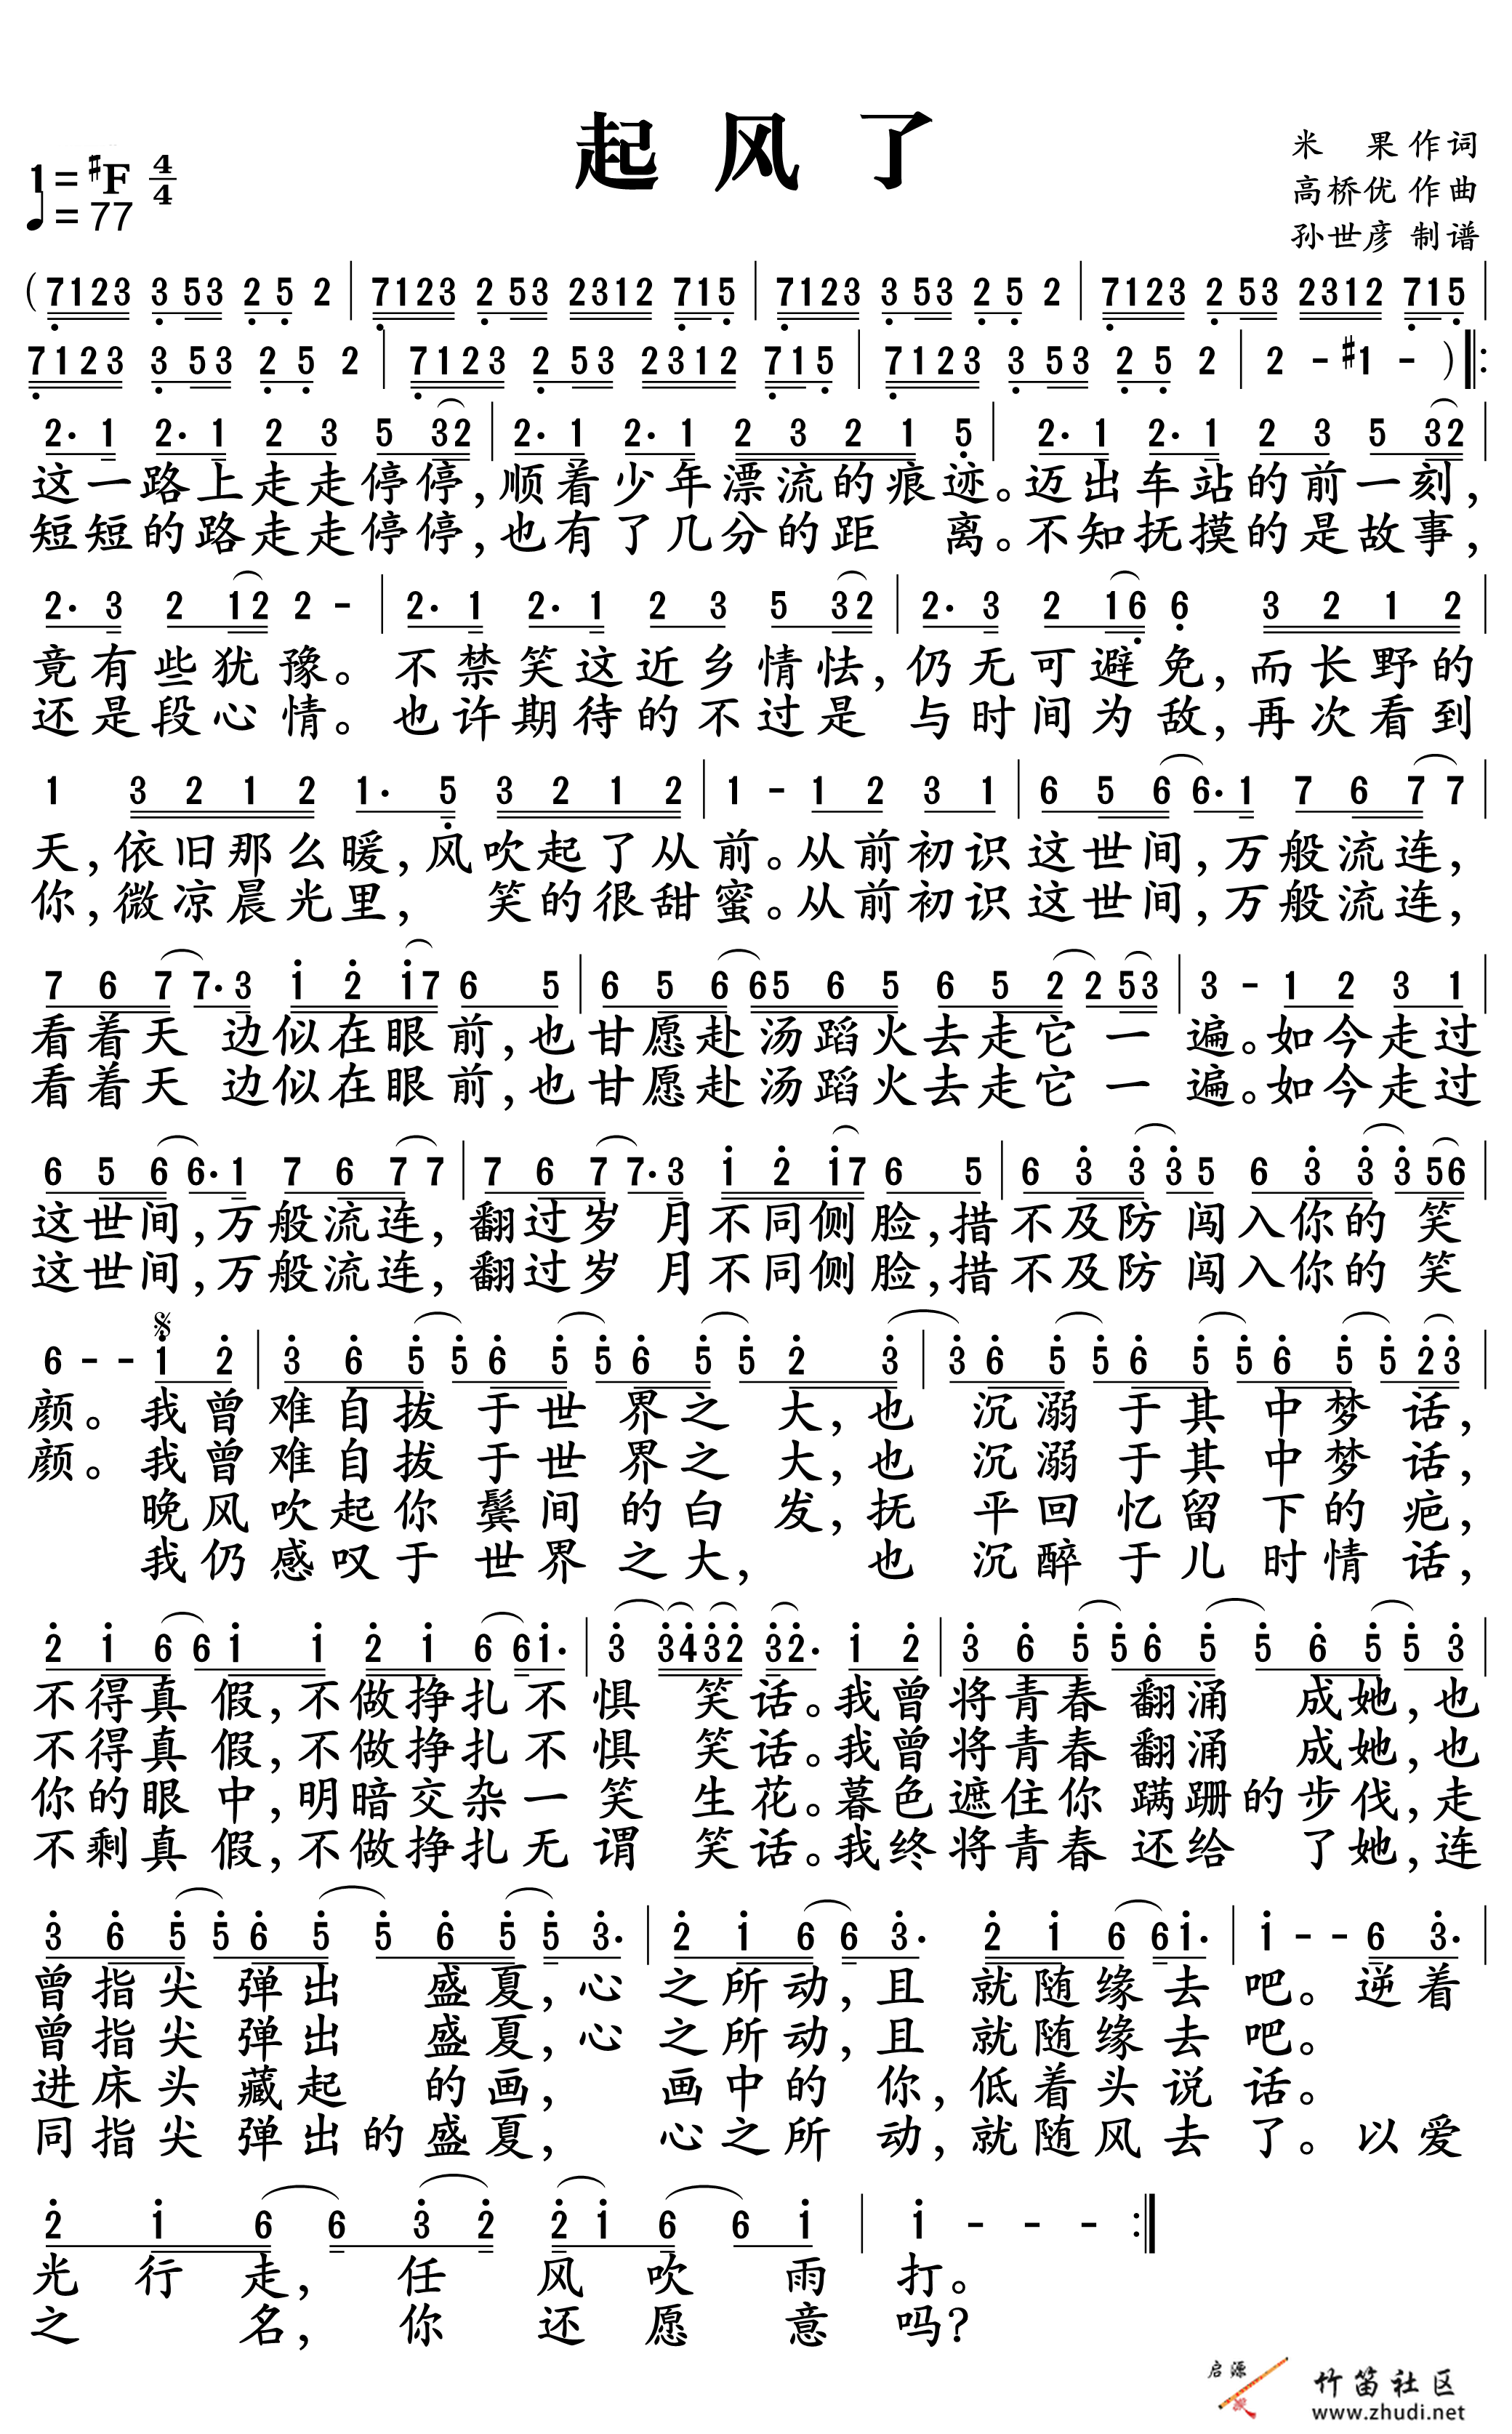 起风了
1=♯F 4/4
♩=77
米 果 作词
高桥优 作曲
孙世彦 制谱
(7123 3 53 2 5 2 | 7123 2 53 2312 715 | 7123 3 53 2 5 2 | 7123 2 53 2312 715 |
7123 3 53 2 5 2 | 7123 2 53 2312 715 | 7123 3 53 2 5 2 | 2 - ♯1 - ) ‖:
2. 1 2. 1 2 3 5 32 | 2. 1 2. 1 2 3 2 1 5 | 2. 1 2. 1 2 3 5 32 |
这一路上走走停停,顺着少年漂流的痕迹。迈出车站的前一刻,
短短的路走走停停,也有了几分的距 离。不知抚摸的是故事,
2. 3 2 12 2 - | 2. 1 2. 1 2 3 5 32 | 2. 3 2 16 6 3 2 1 2 |
竟有些犹豫。不禁笑这近乡情怯,仍无可避免,而长野的
还是段心情。也许期待的不过是 与时间为敌,再次看到
1 3 2 1 2 1. 5 3 2 1 2 | 1 - 1 2 3 1 | 6 5 6 6. 1 7 6 7 7 |
天,依旧那么暖,风吹起了从前。从前初识这世间,万般流连,
你,微凉晨光里, 笑的很甜蜜。从前初识这世间,万般流连,
7 6 7 7. 3 1 2 17 6 5 | 6 5 6 65 6 5 6 5 2 2 53 | 3 - 1 2 3 1 |
看着天 边似在眼前,也甘愿赴汤蹈火去走它 一 遍。如今走过
看着天 边似在眼前,也甘愿赴汤蹈火去走它 一 遍。如今走过
6 5 6 6. 1 7 6 7 7 | 7 6 7 7. 3 1 2 17 6 5 | 6 3 3 3 5 6 3 3 3 56 |
这世间,万般流连,翻过岁 月不同侧脸,措不及防 闯入你的 笑
这世间,万般流连,翻过岁 月不同侧脸,措不及防 闯入你的 笑
6 - - 1 2 | 3 6 5 5 6 5 5 6 5 5 2 3 | 3 6 5 5 6 5 5 6 5 5 23 |
颜。我曾难自拔 于世 界之 大,也 沉溺 于其 中梦 话,
颜。我曾难自拔 于世 界之 大,也 沉溺 于其 中梦 话,
晚风吹起你 鬓间 的白 发,抚 平回忆留 下的疤,
我仍感叹于 世界 之大, 也 沉醉 于儿 时情 话,
2 1 6 6 1 1 2 1 6 6 1. | 3 3432 32. 1 2 | 3 6 5 5 6 5 5 6 5 5 3 |
不得真 假,不做挣扎不 惧 笑话。我曾将青春 翻涌 成她,也
不得真 假,不做挣扎不 惧 笑话。我曾将青春 翻涌 成她,也
你的眼 中,明暗交杂一 笑 生花。暮色遮住你 蹒跚的步伐,走
不剩真 假,不做挣扎无 谓 笑话。我终将青春 还给 了她,连
3 6 5 5 6 5 5 6 5 5 3. | 2 1 6 6 3. 2 1 6 6 1. | 1 - - 6 3. |
曾指尖 弹出 盛夏,心 之所动,且 就随缘去 吧。逆着
曾指尖 弹出 盛夏,心 之所动,且 就随缘去 吧。
进床头 藏起 的画, 画中的 你,低着头说 话。
同指尖 弹出的盛夏, 心之所 动,就随风去 了。以爱
2 1 6 6 3 2 2 1 6 6 1 | 1 - - - :‖
光 行 走, 任 风 吹 雨 打。
之 名, 你 还 愿 意 吗?
启源
竹笛社区
www.zhudi.net